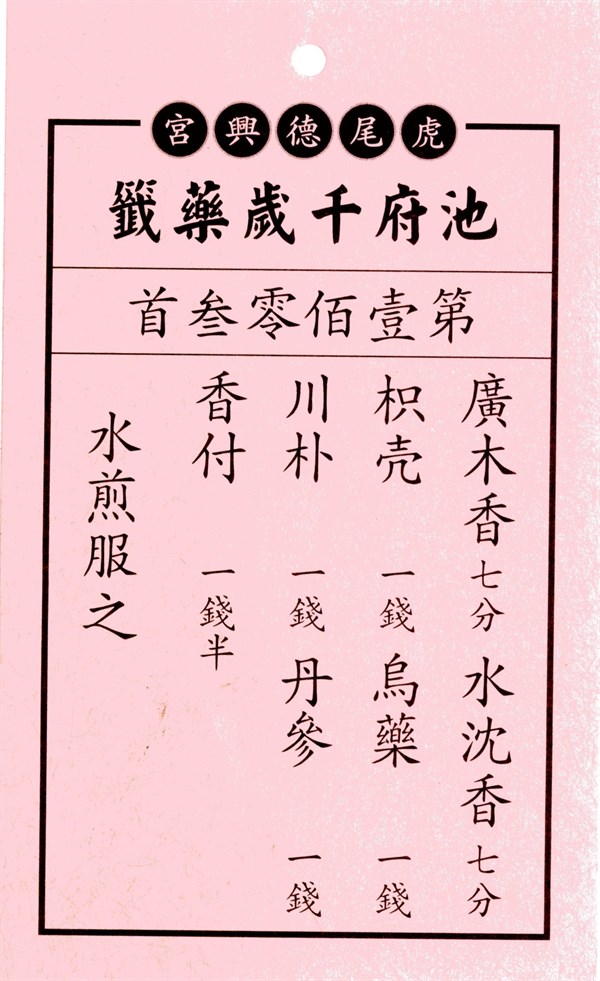 虎尾德興宮
池府千歲藥籤
第壹佰零叁首
廣木香七分水沈香七分
枳壳一錢烏藥一錢
川朴一錢丹參一錢
香付一錢半
水煎服之